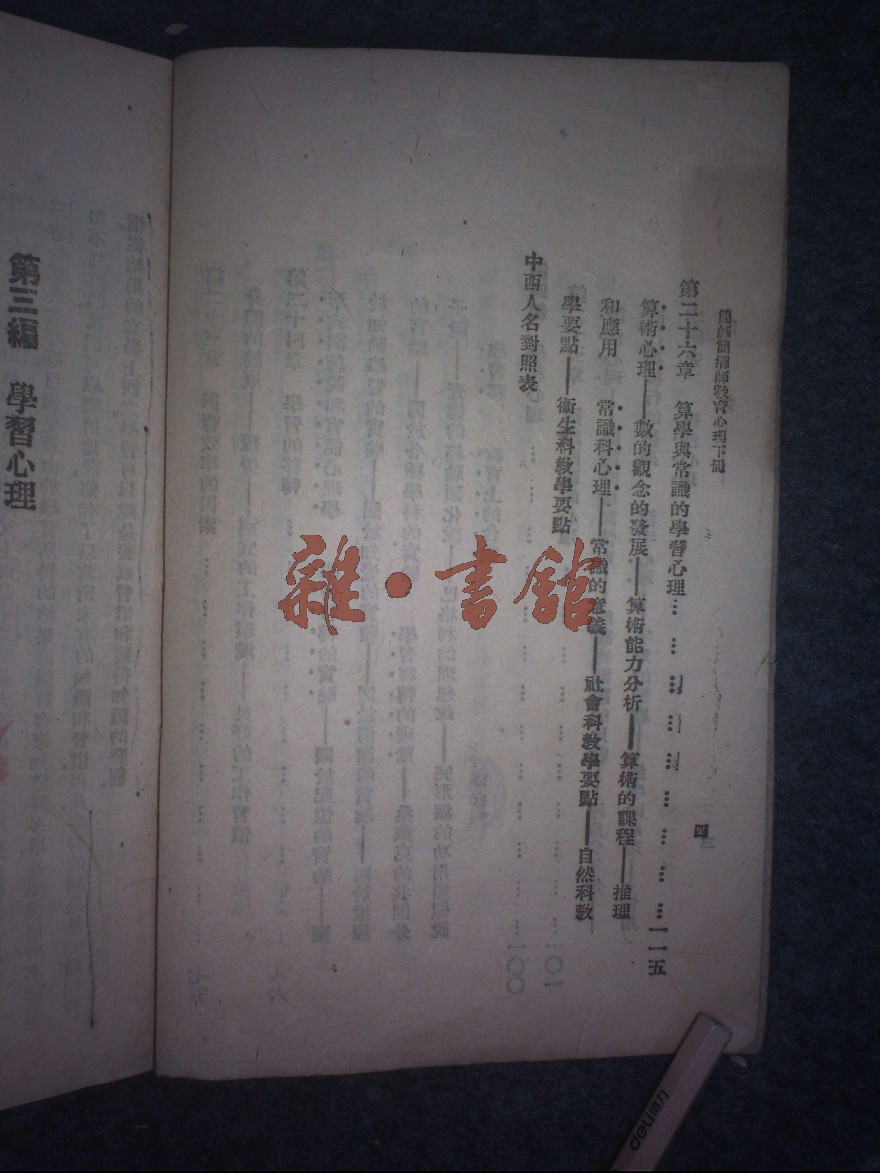 簡師簡鄉師教育心理下冊
四
第二十六章 算學與常識的學習心理……………………一一五
算術心理——數的觀念的發展——算術能力分析——算術的課程——推理
和應用 常識科心理——常識的意義——社會科教學要點——自然科教
學要點——衞生科教學要點
中西人名對照表
第三編 學習心理
雜·書館
deli得力